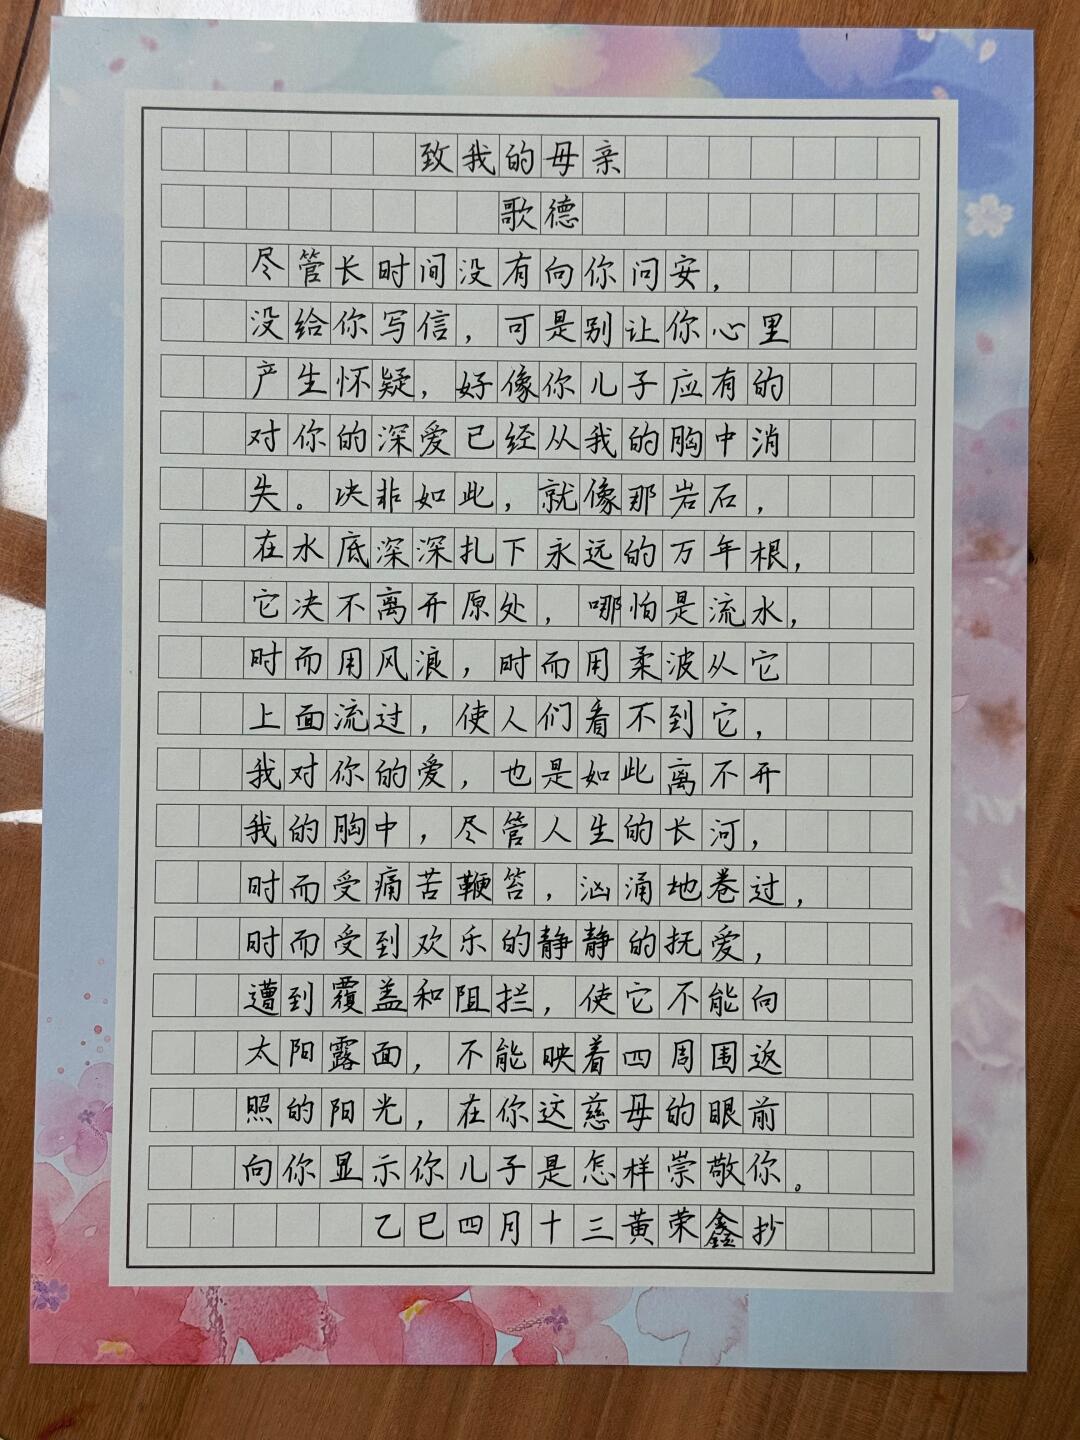 致我的母亲
歌德
尽管长时间没有向你问安，
没给你写信，可是别让你心里
产生怀疑，好像你儿子应有的
对你的深爱已经从我的胸中消
失。决非如此，就像那岩石，
在水底深深扎下永远的万年根，
它决不离开原处，哪怕是流水，
时而用风浪，时而用柔波从它
上面流过，使人们看不到它，
我对你的爱，也是如此离不开
我的胸中，尽管人生的长河，
时而受痛苦鞭笞，汹涌地卷过，
时而受到欢乐的静静的抚爱，
遭到覆盖和阻拦，使它不能向
太阳露面，不能映着四周围返
照的阳光，在你这慈母的眼前
向你显示你儿子是怎样崇敬你。
乙巳四月十三黄荣鑫抄